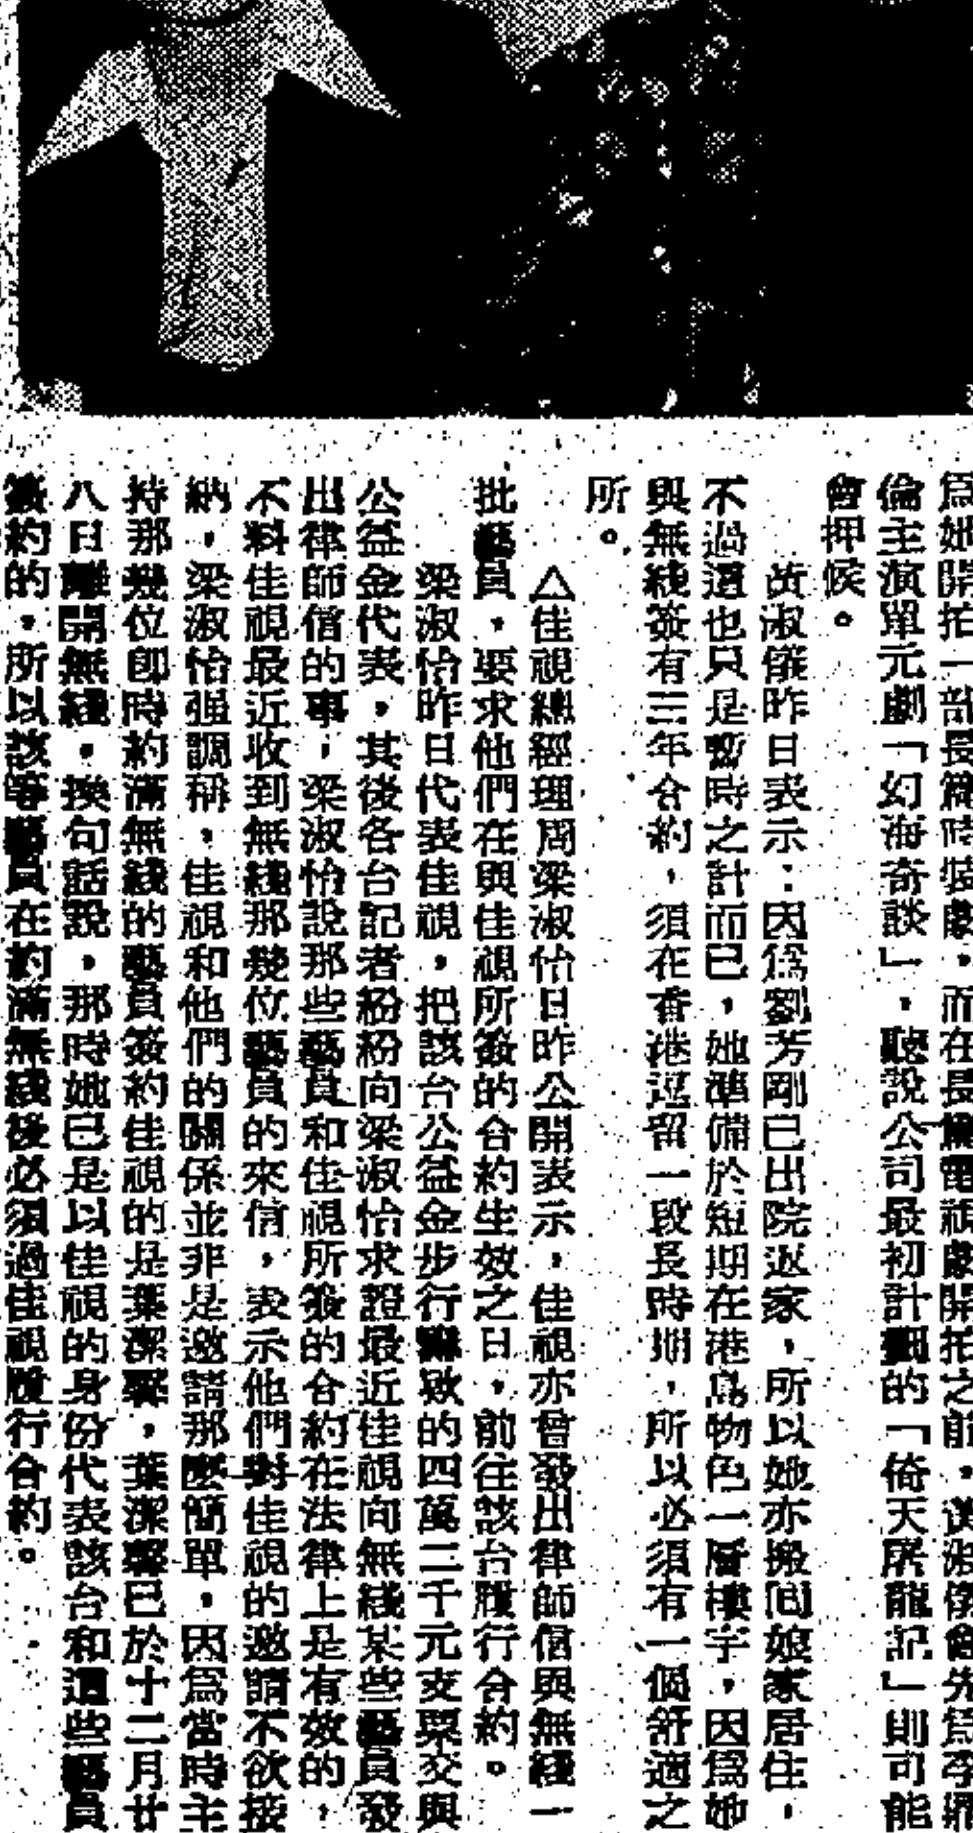 爲她開拍一部長篇時裝劇，而在長篇電視劇開拍之前，黃淑儀會先爲李耀
倫主演單元劇「幻海奇談」，聽說公司最初計劃的「倚天屠龍記」則可能
會押候。
黃淑儀昨日表示：因爲劉芳剛已出院返家，所以她亦搬回娘家居住，
不過這也只是暫時之計而已，她準備於短期在港島物色一層樓宇，因爲她
與無綫簽有三年合約，須在香港逗留一段長時期，所以必須有一個舒適之
所。
△佳視總經理周梁淑怡日昨公開表示，佳視亦曾發出律師信與無綫一
批藝員，要求他們在與佳視所簽的合約生效之日，前往該台履行合約。
梁淑怡昨日代表佳視，把該台公益金步行籌欵的四萬二千元支票交與
公益金代表，其後各台記者紛紛向梁淑怡求證最近佳視向無綫某些藝員發
出律師信的事，梁淑怡說那些藝員和佳視所簽的合約在法律上是有效的，
不料佳視最近收到無綫那幾位藝員的來信，表示他們對佳視的邀請不欲接
納，梁淑怡强調稱，佳視和他們的關係並非是邀請那麼簡單，因爲當時主
持那幾位卽時約滿無綫的藝員簽約佳視的是葉潔馨，葉潔馨已於十二月廿
八日離開無綫，換句話說，那時她已是以佳視的身份代表該台和這些藝員
簽約的，所以該等藝員在約滿無綫後必須過佳視履行合約。